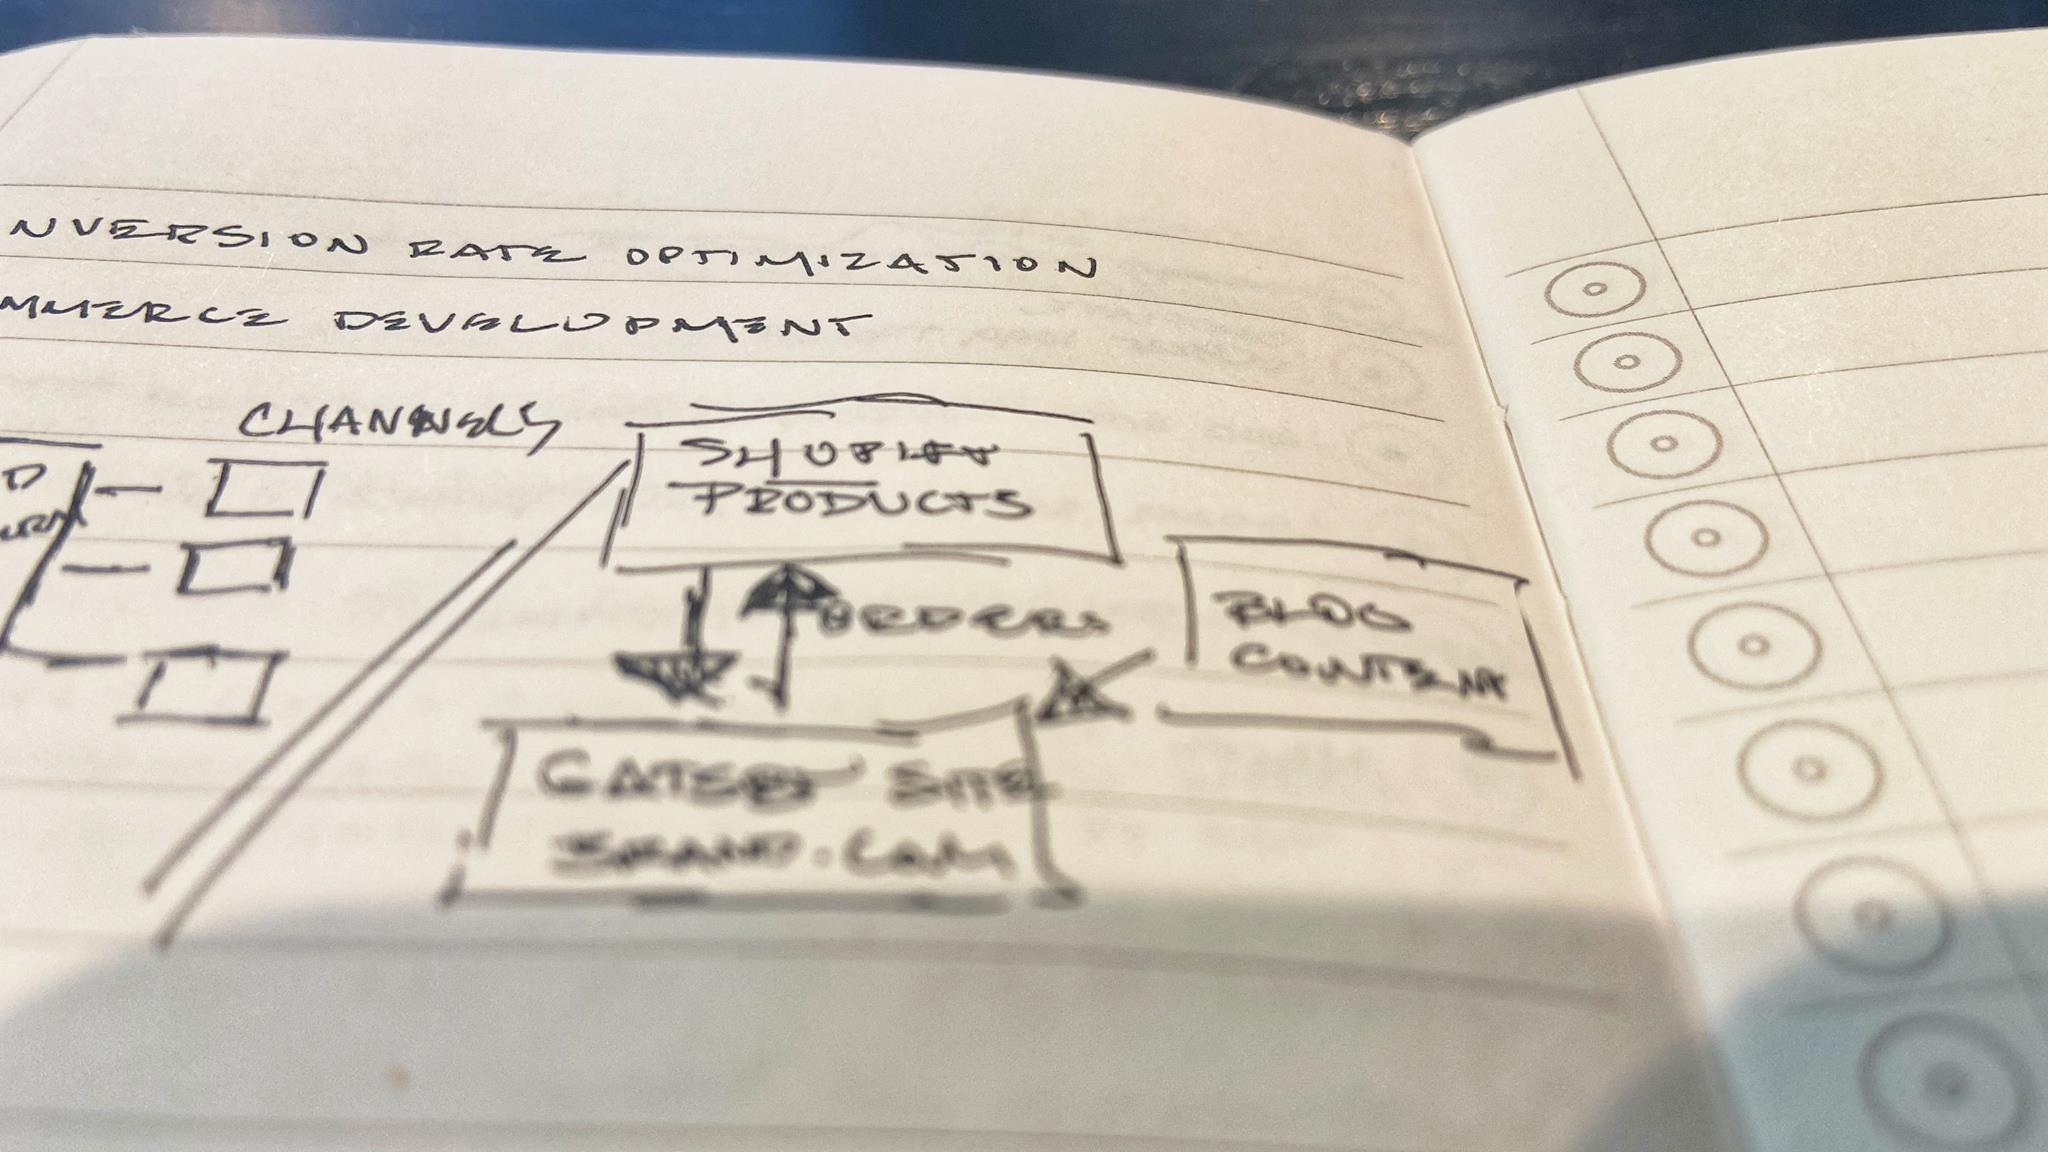 NVERSION RATE OPTIMIZATION
MMERCE DEVELOPMENT
CHANNELS
D
SHOPIFY
PRODUCTS
ORDERS
BLOG
CONTENT
GATSBY SITE
BRAND.COM